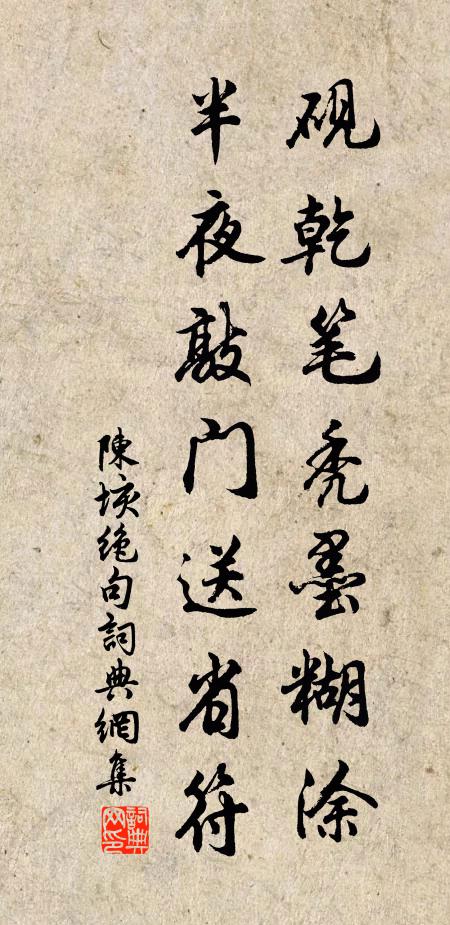 硯乾笔秃墨糊涂
半夜敲门送省符
陳垓绝句詞典網集
詞典网印